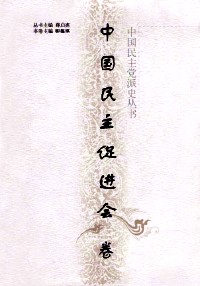 丛书主编
本卷主编
中国民主促进会卷
中国民主党派史丛书